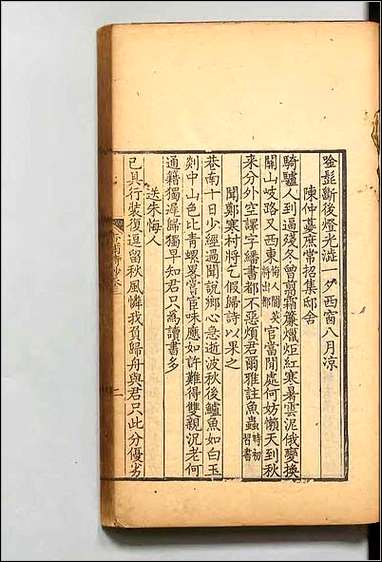 唫髭斷後燈光澁一夕西窗八月涼
陳仲夔庶常招集邸舍
騎驢人到過殘冬曾剪霜簾爥炬紅寒暑雲泥俄變換
關山岐路又西東
官當閒處何妨懶天到秋
來分外空譯字繙書都不惡煩君爾雅註魚蟲時初習書
聞鄭寒村將乞假歸詩以果之
巷南十日少經過聞說鄉心急逝波秋後鱸魚如白玉
剡中山色比靑螺畧嘗官味應如許難得雙親況老何
通籍獨遲歸獨早知君只為讀書多
送朱悔人
已具行裝復逗留秋風憐我負歸舟與君只此分優劣